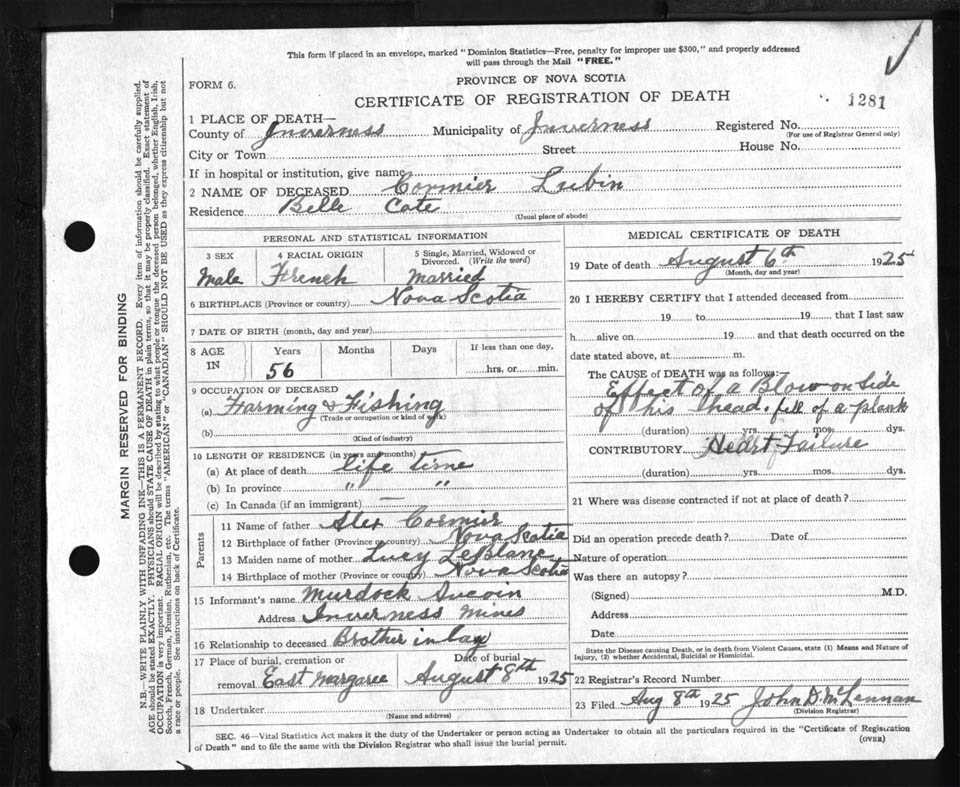 This form if placed in an envelope, marked "Dominion Statistics—Free, penalty for improper use $300," and properly addressed
will pass through the Mail "FREE."
FORM 6.
PROVINCE OF NOVA SCOTIA
CERTIFICATE OF REGISTRATION OF DEATH
1281
1 PLACE OF DEATH—
County of Inverness Municipality of Inverness Registered No.
(For use of Registrar General only)
City or Town Street House No.
If in hospital or institution, give name
2 NAME OF DECEASED Cormier Lubin
Residence Belle Cote
(Usual place of abode)
PERSONAL AND STATISTICAL INFORMATION
3 SEX 4 RACIAL ORIGIN 5 Single, Married, Widowed or
Divorced. (Write the word)
Male French Married
6 BIRTHPLACE (Province or country) Nova Scotia
7 DATE OF BIRTH (month, day and year)
8 AGE IN Years Months Days If less than one day,
56 hrs. or min.
9 OCCUPATION OF DECEASED
(a) Farming & Fishing
(Trade or occupation or kind of work)
(b)
(Kind of industry)
10 LENGTH OF RESIDENCE (in years and months)
(a) At place of death life time
(b) In province " "
(c) In Canada (if an immigrant) —
Parents
11 Name of father Alex Cormier
12 Birthplace of father (Province or country) Nova Scotia
13 Maiden name of mother Lucy LeBlanc
14 Birthplace of mother (Province or country) Nova Scotia
15 Informant's name Murdock
Address Inverness Mines
16 Relationship to deceased Brother in law
17 Place of burial, cremation or Date of burial
removal East Margaree August 8th 1925
18 Undertaker
(Name and address)
MEDICAL CERTIFICATE OF DEATH
19 Date of death August 6th 1925
(Month, day and year)
20 I HEREBY CERTIFY that I attended deceased from
19 to 19 that I last saw
h alive on 19 and that death occurred on the
date stated above, at m.
The CAUSE of DEATH was as follows:
Effect of a Blow on Side
of his head. fell of a plank
(duration) yrs. mos. dys.
CONTRIBUTORY Heart Failure
(duration) yrs. mos. dys.
21 Where was disease contracted if not at place of death?
Did an operation precede death? Date of
Nature of operation
Was there an autopsy?
(Signed) M.D.
Address
Date
State the Disease causing Death, or in death from Violent Causes, state (1) Means and Nature of
Injury, (2) whether Accidental, Suicidal or Homicidal.
22 Registrar's Record Number
23 Filed Aug 8th 1925 John D. McLennan
(Division Registrar)
SEC. 46—Vital Statistics Act makes it the duty of the Undertaker or person acting as Undertaker to obtain all the particulars required in the "Certificate of Registration
of Death" and to file the same with the Division Registrar who shall issue the burial permit.
(OVER)
MARGIN RESERVED FOR BINDING
N.B.—WRITE PLAINLY WITH UNFADING INK—THIS IS A PERMANENT RECORD. Every item of information should be carefully supplied.
AGE should be stated EXACTLY. PHYSICIANS should STATE CAUSE OF DEATH in plain terms, so that it may be properly classified. Exact statement of
OCCUPATION is very important. RACIAL ORIGIN will be described by stating to what people or tongue the deceased person belonged, whether English, Irish,
Scotch, French, German, Russian, Ruthenian, etc. The terms "AMERICAN" or "CANADIAN" SHOULD NOT BE USED as they express citizenship but not
a race or people. See instructions on back of Certificate.